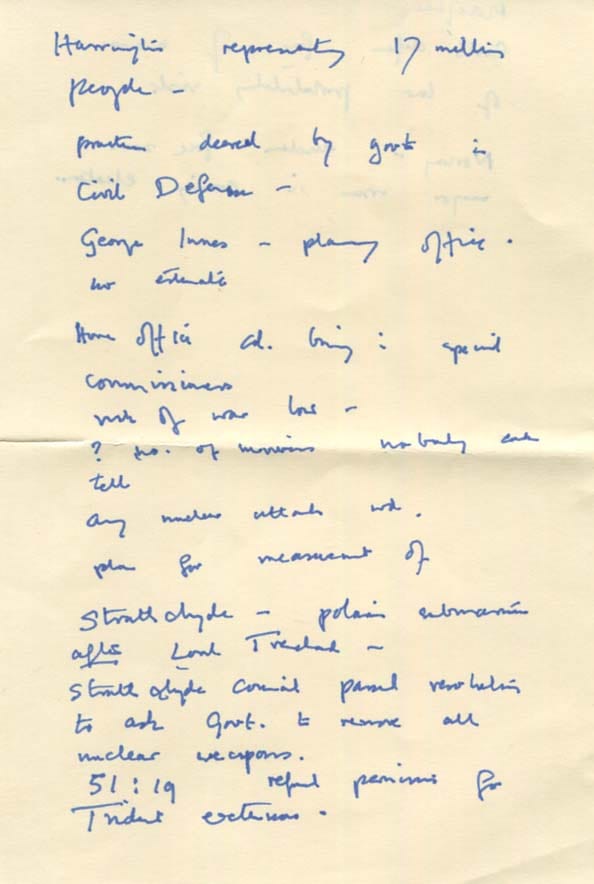 representing 17 million
people -
by govt in
Civil Defense -
George Innes - planning office.
no estimate
Home Office cd. bring : special
commissioners
risk of war low -
? no. of nobody can
tell
any nuclear attack wd.
plan for measurement of
Strathclyde - polaris submarine
after
Strathclyde Council passed resolution
to ask Govt. to remove all
nuclear weapons.
51 : 19 refused permission for
Trident extension.